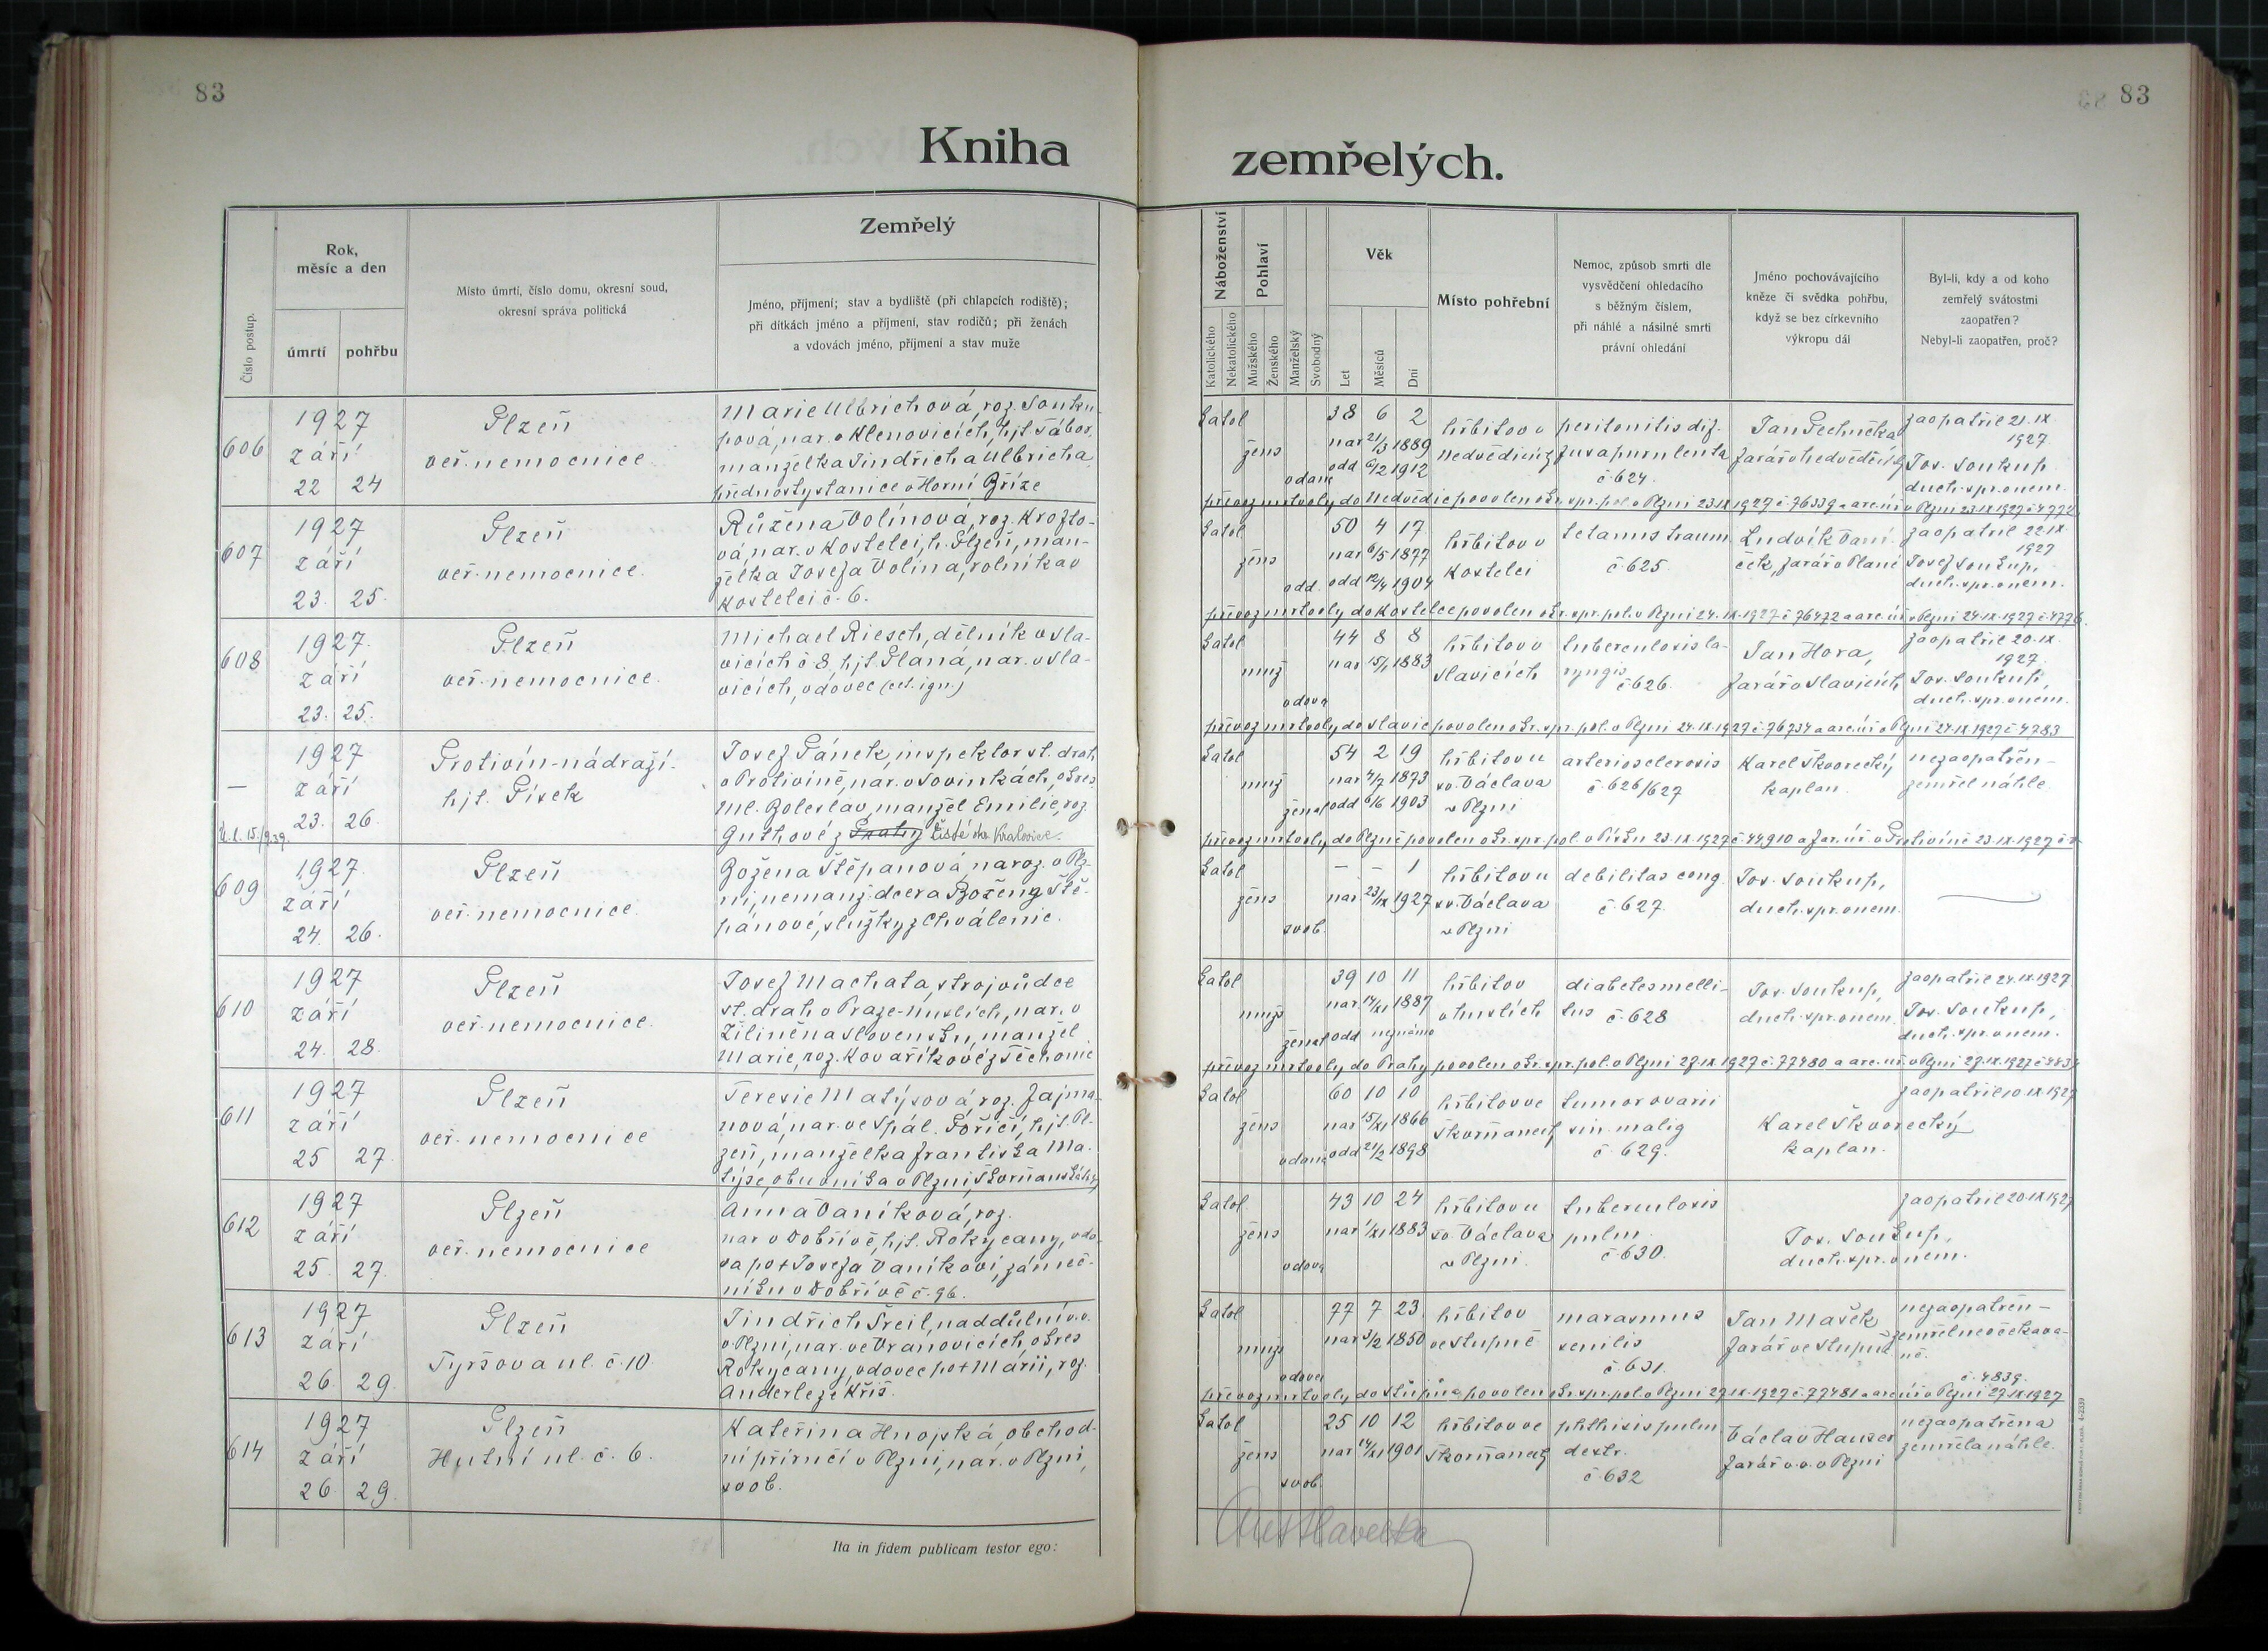 83
83
Kniha zemřelých.
Číslo postup.
Rok,
měsíc a den
úmrtí
pohřbu
Místo úmrtí, číslo domu, okresní soud,
okresní správa politická
Zemřelý
Jméno, příjmení; stav a bydliště (při chlapcích rodiště);
při dítkách jméno a příjmení, stav rodičů; při ženách
a vdovách jméno, příjmení a stav muže
Náboženství
Katolického
Nekatolického
Pohlaví
Mužského
Ženského
Manželský
Svobodný
Věk
Let
Měsíců
Dní
Místo pohřební
Nemoc, způsob smrti dle
vysvědčení ohledacího
s běžným číslem,
při náhlé a násilné smrti
právní ohledání
Jméno pochovávajícího
kněze či svědka pohřbu,
když se bez církevního
výkropu dál
Byl-li, kdy a od koho
zemřelý svátostmi
zaopatřen?
Nebyl-li zaopatřen, proč?
606
1927
září
22 24
Plzeň
veř. nemocnice
Marie Ulbrichová, roz. Souku-
pová, nar. v Klenovicích, hjt. Tábor,
manželka Jindřicha Ulbricha,
přednosty stanice v Horní Bříze
katol
žens
vdaná
38 6 2
nar 21/3 1889
odd 6/2 1912
hřbitov v
Nedvědicích
peritonitis dif.
fusa purulenta
č. 624.
Jan Pechnička
farář v Nedvědicích
zaopatřil 21.IX.
1927.
Jos. Soukup
duch. spr. v nem.
převoz mrtvoly do Nedvědic povolen okr. spr. pol. v Plzni 23.IX.1927 č. 76339 a arc. úř. v Plzni 23.IX.1927 č. 4772
607
1927
září
23. 25.
Plzeň
veř. nemocnice.
Růžena Volínová, roz. Krofto-
vá, nar. v Kostelci, h. Plzeň, man-
želka Josefa Volína, rolníka v
Kostelci č. 6.
katol
žens
odd.
50 4 17
nar 6/5 1877
odd 12/4 1904
hřbitov v
Kostelci
tetanus traum
č. 625.
Ludvík Vaní-
ček, farář v Plané
zaopatřil 22.IX.
1927
Josef Soukup,
duch. spr. v nem.
převoz mrtvoly do Kostelce povolen okr. spr. pol. v Plzni 24.IX.1927 č. 76472 a arc. úř. v Plzni 24.IX.1927 č. 4776.
608
1927.
září
23. 25.
Plzeň
veř. nemocnice.
Michael Riesch, dělník v Sla-
vicích č. 8, hjt. Planá, nar. v Sla-
vicích, vdovec (cet. ign.)
katol
muž
vdov.
44 8 8
nar 15/1 1883
hřbitov v
Slavicích
tuberculosis la-
ryngis
č. 626.
Jan Hora,
farář v Slavicích
zaopatřil 20.IX.
1927.
Jos. Soukup
duch. spr. v nem.
převoz mrtvoly do Slavic povolen okr. spr. pol. v Plzni 24.IX.1927 č. 76734 a arc. úř. v Plzni 24.IX.1927 č. 4783
—
1927
září
23. 26.
Protivín-nádraží.
hjt. Písek
Josef Pánek, inspektor st. drah
v Protivíně, nar. v Sovinkách, okres
Ml. Boleslav, manžel Emilie, roz.
Guthové z Prahy Čisté okr. Kralovice.
katol
muž
ženat
54 2 19
nar 4/7 1873
odd 6/6 1903
hřbitov u
sv. Václava
v Plzni
arteriosclerosis
č. 626/627
Karel Škvorecký,
kaplan.
nezaopatřen —
zemřel náhle.
převoz mrtvoly do Plzně povolen okr. spr. pol. v Písku 23.IX.1927 č. 44910 a far. úř. v Protivíně 23.IX.1927
609
1927.
září
24. 26.
Plzeň
veř. nemocnice.
Božena Štěpanová, naroz. v Plz-
ni, nemanž. dcera Boženy Ště-
pánové, služky z Chválenic.
katol
žens
svob.
— — 1
nar 23/IX 1927
hřbitov u
sv. Václava
v Plzni
debilitas cong.
č. 627.
Jos. Soukup,
duch. spr. v nem.
610
1927
září
24. 28.
Plzeň
veř. nemocnice.
Josef Machata, strojvůdce
st. drah v Praze-Nuslích, nar. v
Žilině na Slovensku, manžel
Marie, roz. Kovaříkové z Těchonic
katol
mužs
ženat
39 10 11
nar 14/XI 1887
odd neznámo
hřbitov
v Nuslích
diabetes melli-
tus č. 628
Jos. Soukup,
duch. spr. v nem.
zaopatřil 24.IX.1927
Jos. Soukup,
duch. spr. v nem.
převoz mrtvoly do Prahy povolen okr. spr. pol. v Plzni 27.IX.1927 č. 77480 a arc. úř. v Plzni 27.IX.1927
611
1927
září
25 27.
Plzeň
veř. nemocnice
Terezie Matýsová roz. Zajma-
nová, nar. ve Spál. Poříčí, hjt. Pl-
zeň, manželka Františka Ma-
týse, obuvníka v Plzni,
katol
žens
vdaná
60 10 10
nar 15/XI 1866
odd 21/2 1898
hřbitov ve
Skvrňanech
tumor ovarii
sin. malig
č. 629.
Karel Škvorecký
kaplan.
zaopatřil 10.IX.1927
612
1927
září
25. 27.
Plzeň
veř. nemocnice
Anna Vaníková, roz.
nar v Dobřívě, hjt. Rokycany, vdo-
va po † Josefa Vaníkovi, zámeč-
níku v Dobřívě č. 96.
katol.
žens
vdova
43 10 24
nar 1/XI 1883
hřbitov u
sv. Václava
v Plzni.
tuberculosis
pulm.
č. 630.
Jos. Soukup,
duch. spr. v nem.
zaopatřil 20.IX.1927
613
1927
září
26. 29.
Plzeň
Tyršova ul. č. 10.
Jindřich Šreil, naddůlní v.v.
v Plzni, nar. ve Vranovicích, okres
Rokycany, vdovec po † Marii, roz.
Anderle z Kříš.
katol
mužs
vdovec
77 7 23.
nar 3/2 1850
hřbitov
ve Stupně
marasmus
senilis
č. 631.
Jan Mašek
farář ve Stupně
nezaopatřen —
zemřel neočekáva-
ně.
č. 4839.
převoz mrtvoly do Stupna povolen okr. spr. pol. v Plzni 27.IX.1927 č. 77481 a arc. úř. v Plzni 27.IX.1927
614
1927
září
26 29.
Plzeň
Hutní ul. č. 6.
Kateřina Hnojská, obchod-
ní příručí v Plzni, nar. v Plzni,
svob.
katol
žens
svob.
25 10 12
nar 14/XI 1901
hřbitov ve
Skvrňanech
phthisis pulm
dextr.
č. 632
Václav Hauser
farář v.v. v Plzni
nezaopatřena
zemřela náhle.
Ita in fidem publicam testor ego: